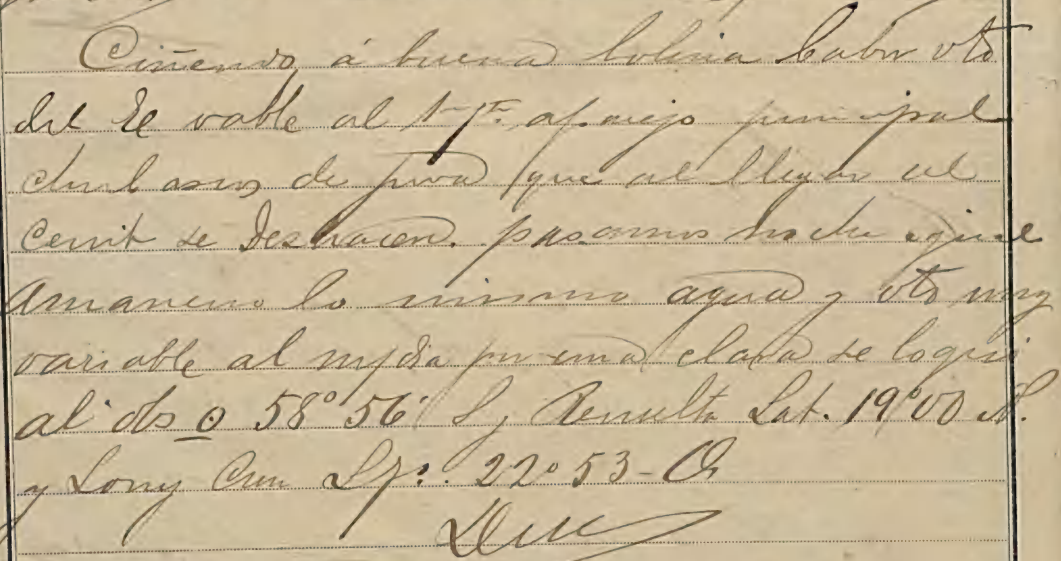 Ciñendo á buena bolina Babor vto
del Se vable al aparejo principal
chubascos de proa que al llegar al
cenit se deshacen. pasamos noche igual
Amanecio lo mismo agua y vto muy
variable al m/dia por una clara se logró
al obs 58° 56' S, Resulta Lat. 19°00 N.
y Long Cron Sp: 22°53-O